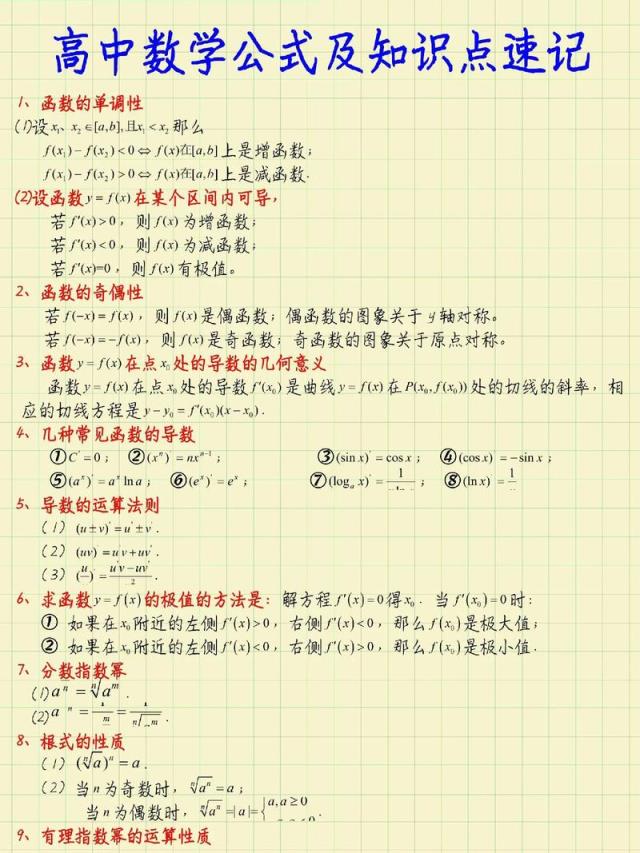 高中数学公式及知识点速记
1、函数的单调性
(1)设x₁、x₂∈[a,b],且x₁<x₂那么
f(x₁)-f(x₂)<0⇔f(x)在[a,b]上是增函数;
f(x₁)-f(x₂)>0⇔f(x)在[a,b]上是减函数.
(2)设函数y=f(x)在某个区间内可导,
若f′(x)>0,则f(x)为增函数;
若f′(x)<0,则f(x)为减函数;
若f′(x)=0,则f(x)有极值。
2、函数的奇偶性
若f(-x)=f(x),则f(x)是偶函数;偶函数的图象关于y轴对称。
若f(-x)=-f(x),则f(x)是奇函数;奇函数的图象关于原点对称。
3、函数y=f(x)在点x₀处的导数的几何意义
函数y=f(x)在点x₀处的导数f′(x₀)是曲线y=f(x)在P(x₀,f(x₀))处的切线的斜率,相
应的切线方程是y-y₀=f′(x₀)(x-x₀).
4、几种常见函数的导数
①C′=0; ②(xⁿ)′=nxⁿ⁻¹; ③(sin x)′=cos x; ④(cos x)′=-sin x;
⑤(aˣ)′=aˣ ln a; ⑥(eˣ)′=eˣ; ⑦(logₐ x)′=1/; ⑧(ln x)′=1/
5、导数的运算法则
(1)(u±v)′=u′±v′.
(2)(uv)′=u′v+uv′.
(3)(u/)′=(u′v-uv′)/2.
6、求函数y=f(x)的极值的方法是:解方程f′(x)=0得x₀.当f′(x₀)=0时:
① 如果在x₀附近的左侧f′(x)>0,右侧f′(x)<0,那么f(x₀)是极大值;
② 如果在x₀附近的左侧f′(x)<0,右侧f′(x)>0,那么f(x₀)是极小值.
7、分数指数幂
(1)a ⁿ=ⁿ√aᵐ.
(2)a ⁿ=1/ᵐ=1/ⁿ√aᵐ.
8、根式的性质
(1)(ⁿ√a)ⁿ=a.
(2)当n为奇数时,ⁿ√aⁿ=a;
当n为偶数时,ⁿ√aⁿ=|a|={a,a≥0
9、有理指数幂的运算性质